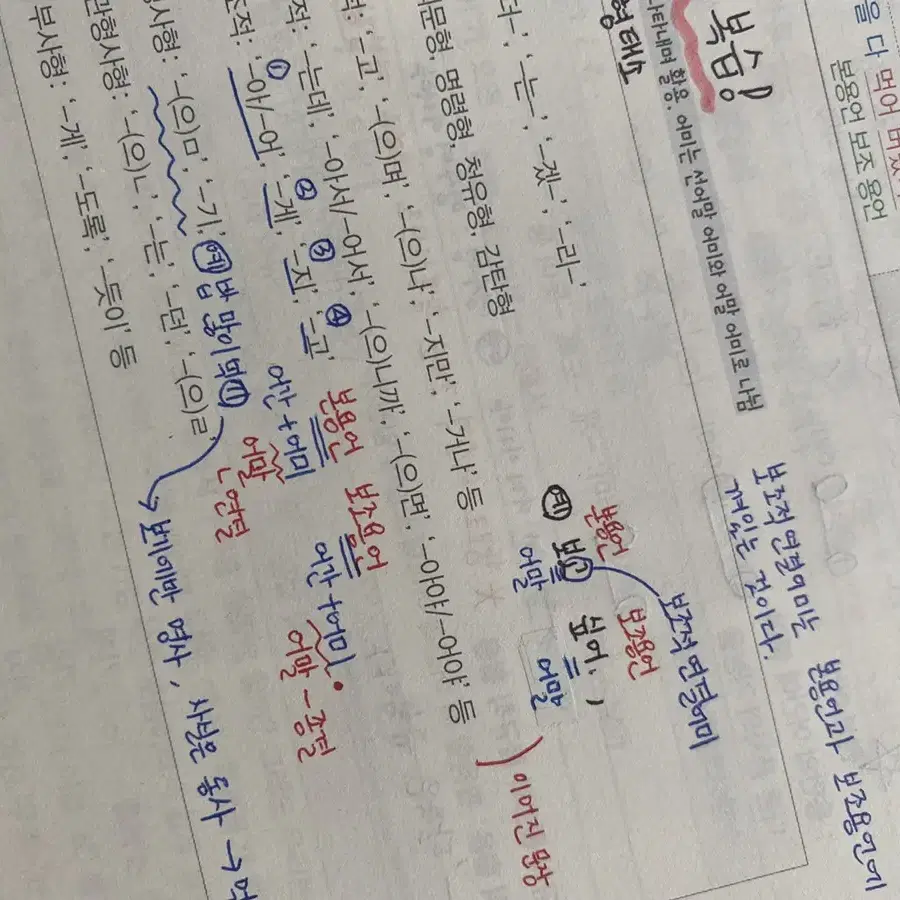 을 다 먹어
본용언 보조 용언
복습!
타내며 활용. 어미는 선어말 어미와 어말 어미로 나뉨
형태소
보조적 연결어미는 본용언과 보조용언에
껴있는 것이다.
'-는-', '-겠-', '-리-'
의문형, 명령형, 청유형, 감탄형
본용언 보조용언
예 보고 싶어.
어말 어말
보조적 연결어미
'-고', '-(으)며', '-(으)나', '-지만', '-거나' 등
적: '-는데', '-아서/-어서', '-(으)니까', '-(으)면', '-아야/-어야' 등
이어진 문장
조적: ① '-아/-어', ② '-게', ③ '-지', ④ '-고'
본용언 보조용언
어간+어미 어간+어미
어말 어말 - 종결
연결
사형: '-(으)ㅁ', '-기' 예 밥 많이 먹기
→ 보이기에만 명사, 사실은 동사 →
관형사형: '-(으)ㄴ', '-는', '-던', '-(으)ㄹ'
부사형: '-게', '-도록', '-듯이' 등